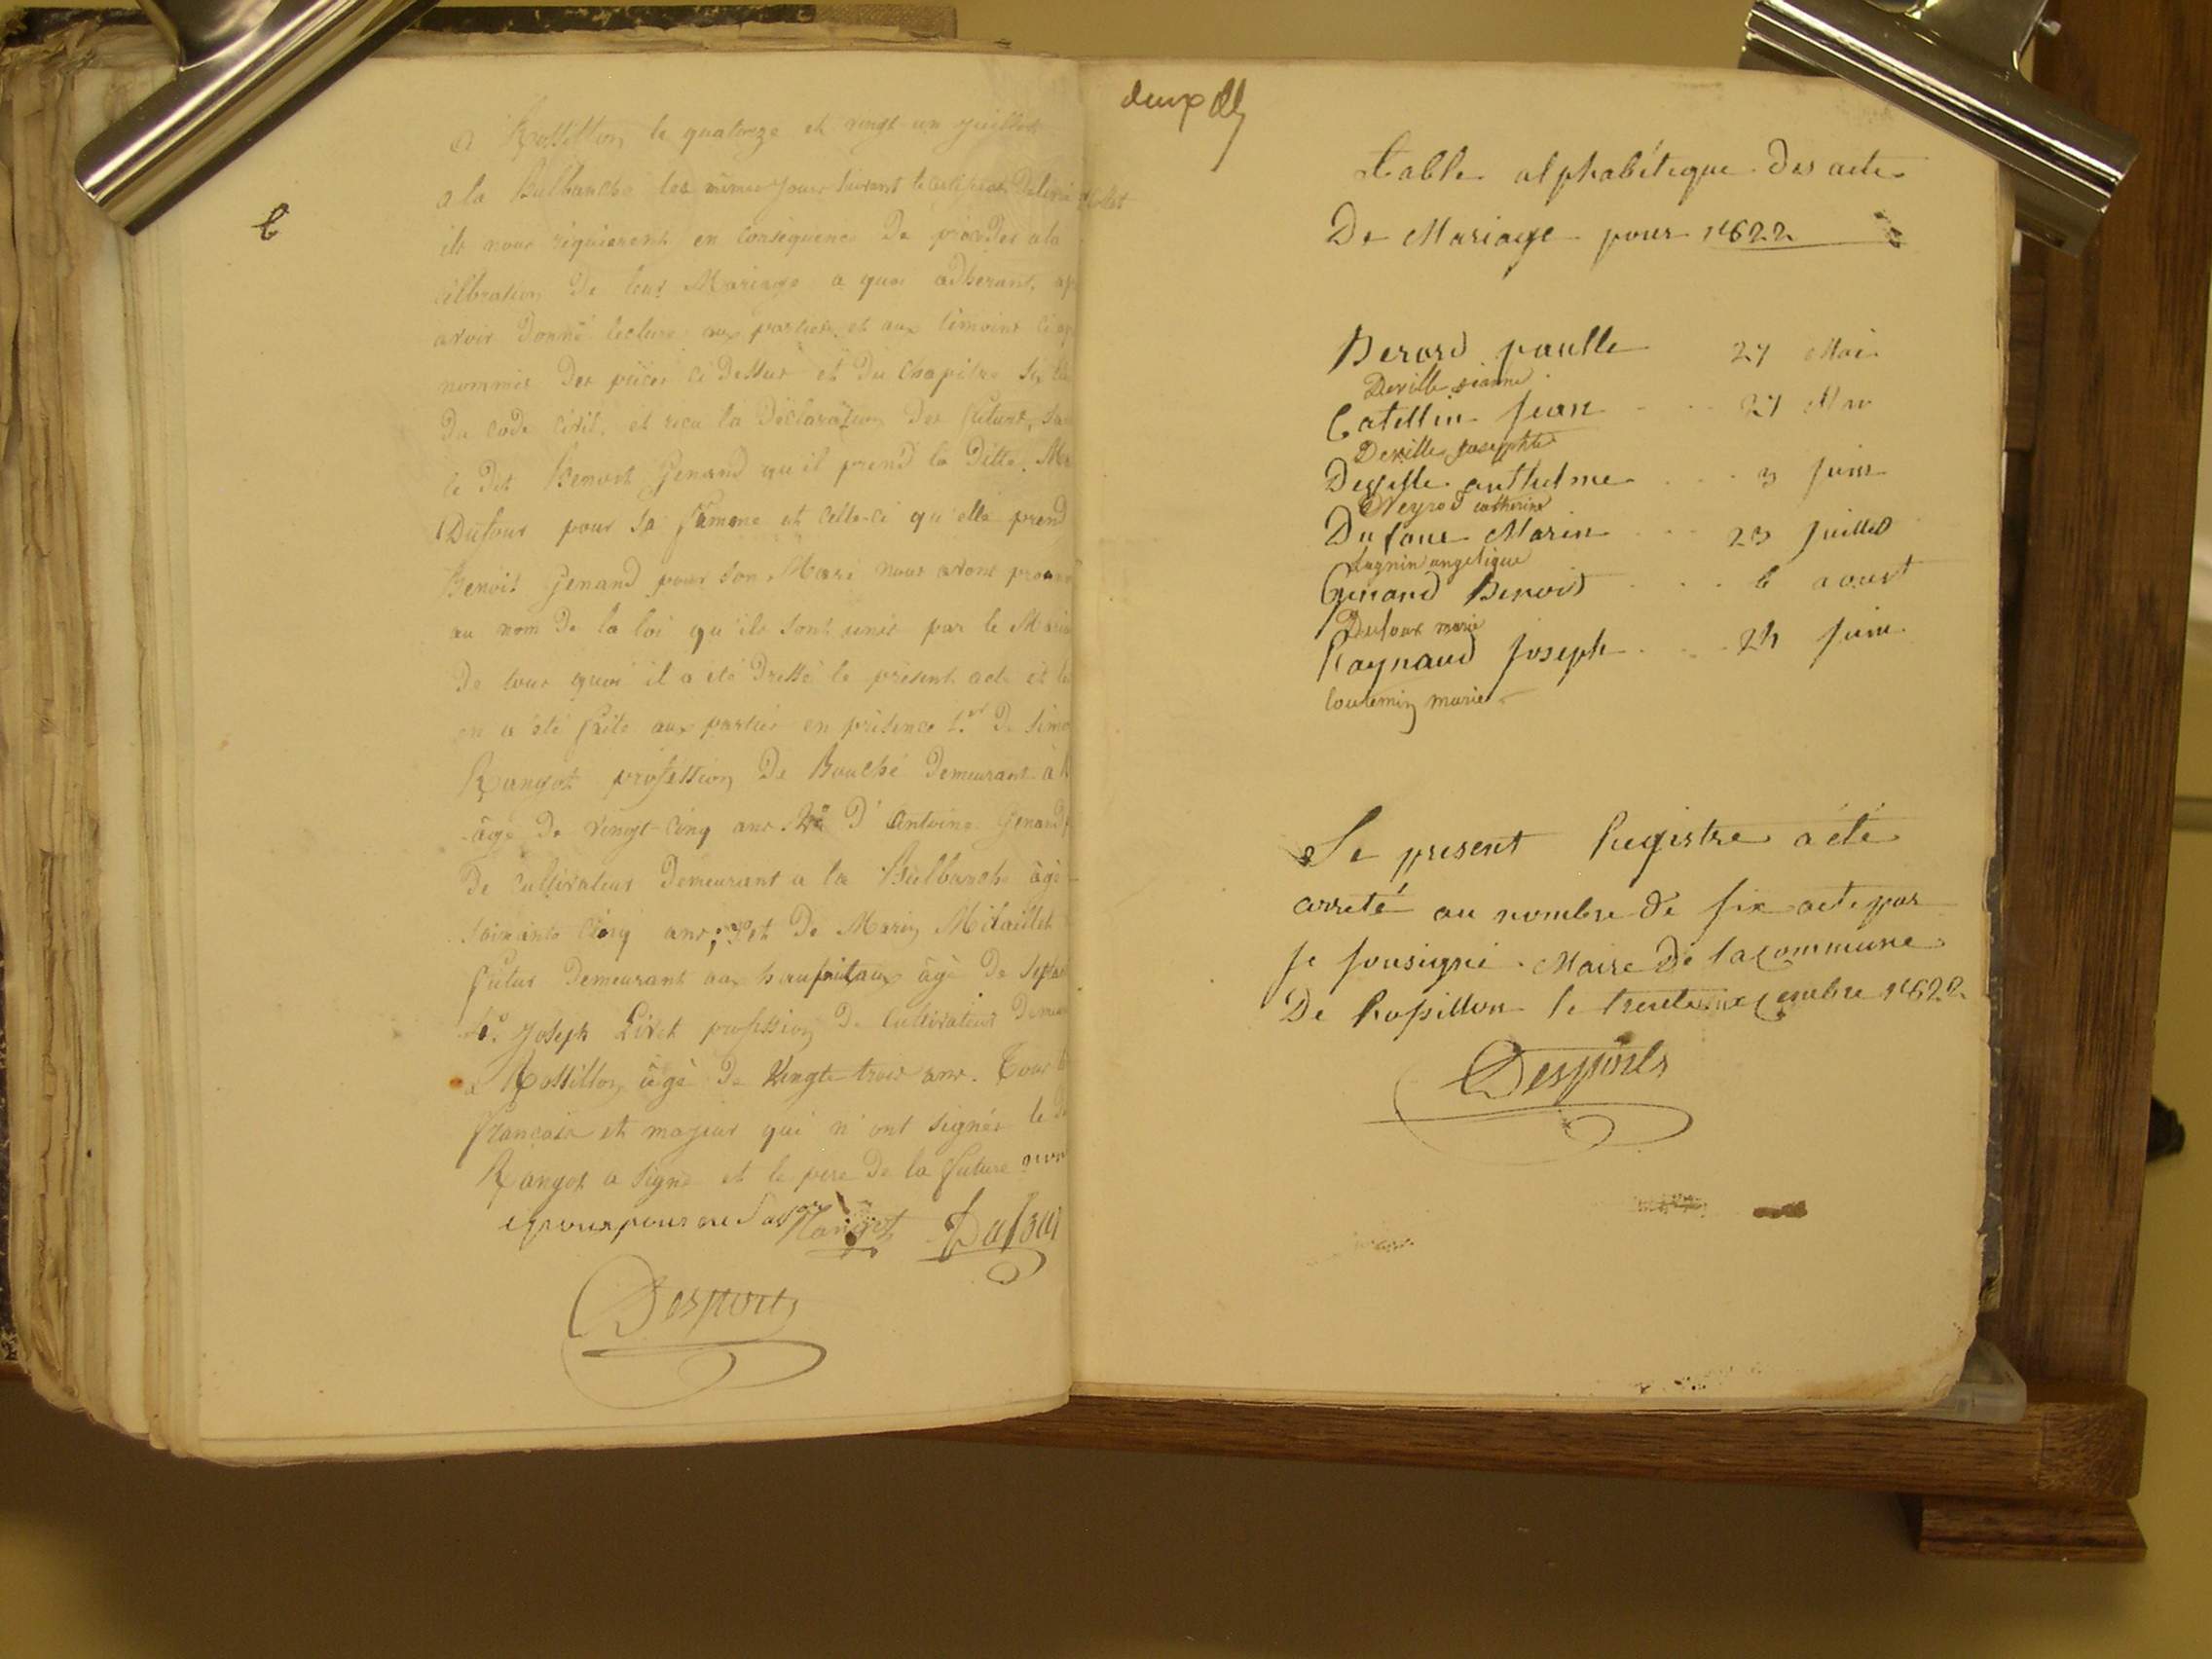 6
a Rossillon le quatorze et vingt-un juillet
a la Bulbanche les mêmes jours suivant le certificat Delivré
ils nous réquierent en conséquence De procéder a la
célébration De leur Mariage a quoi adhérant, ap
avoir Donné lecture aux parties et aux témoins ci ap
nommés Des pièces ci Dessus et Du chapitre six
Du code civil, et reçu la Déclaration Des futurs,
le Dit Benoit Genand qu'il prend la Ditte. Ma
Dufour pour sa femme et celle-ci qu'elle prend
Benoit Genand pour son Mari nous avons pronon
au nom De la loi qu'ils sont unis par le Maria
De tout quoi il a été Dressé le présent acte et le
en a été faite aux parties en présence 1.er De Simo
Rangot profession De Bouché Demeurant à R
âgé De vingt-cinq ans D'Antoine Genand
De cultivateur Demeurant a la Bulbanche âgé
soixante cinq ans; et De Marin Milaillet
futur Demeurant aux âgé De
Joseph Livet profession De Cultivateur Demeu
a Rossillon âgé De Vingte trois ans. Tous
français et majeur qui n'ont signés le
Rangot a signé et le père De la future non
Rangot Dufour
Desports
deux
table alphabétique Des acte
De Mariage pour 1822
Berard paulle 27 Mai
Deville jeanne
Catellin jean 27 Mai
Deville josephte
Deville anthelme 3 juin
Neyrod catherine
Dufour Marin 23 juillet
Lagnin angelique
Genand Benoit 6 aoust
Dufour marie
Raynaud joseph 24 juin
Coutemin marie
Le present Registre a été
arreté au nombre de six acte par
je sousigné Maire De la commune
De Rossillon le trente un Xcembre 1822
Desports